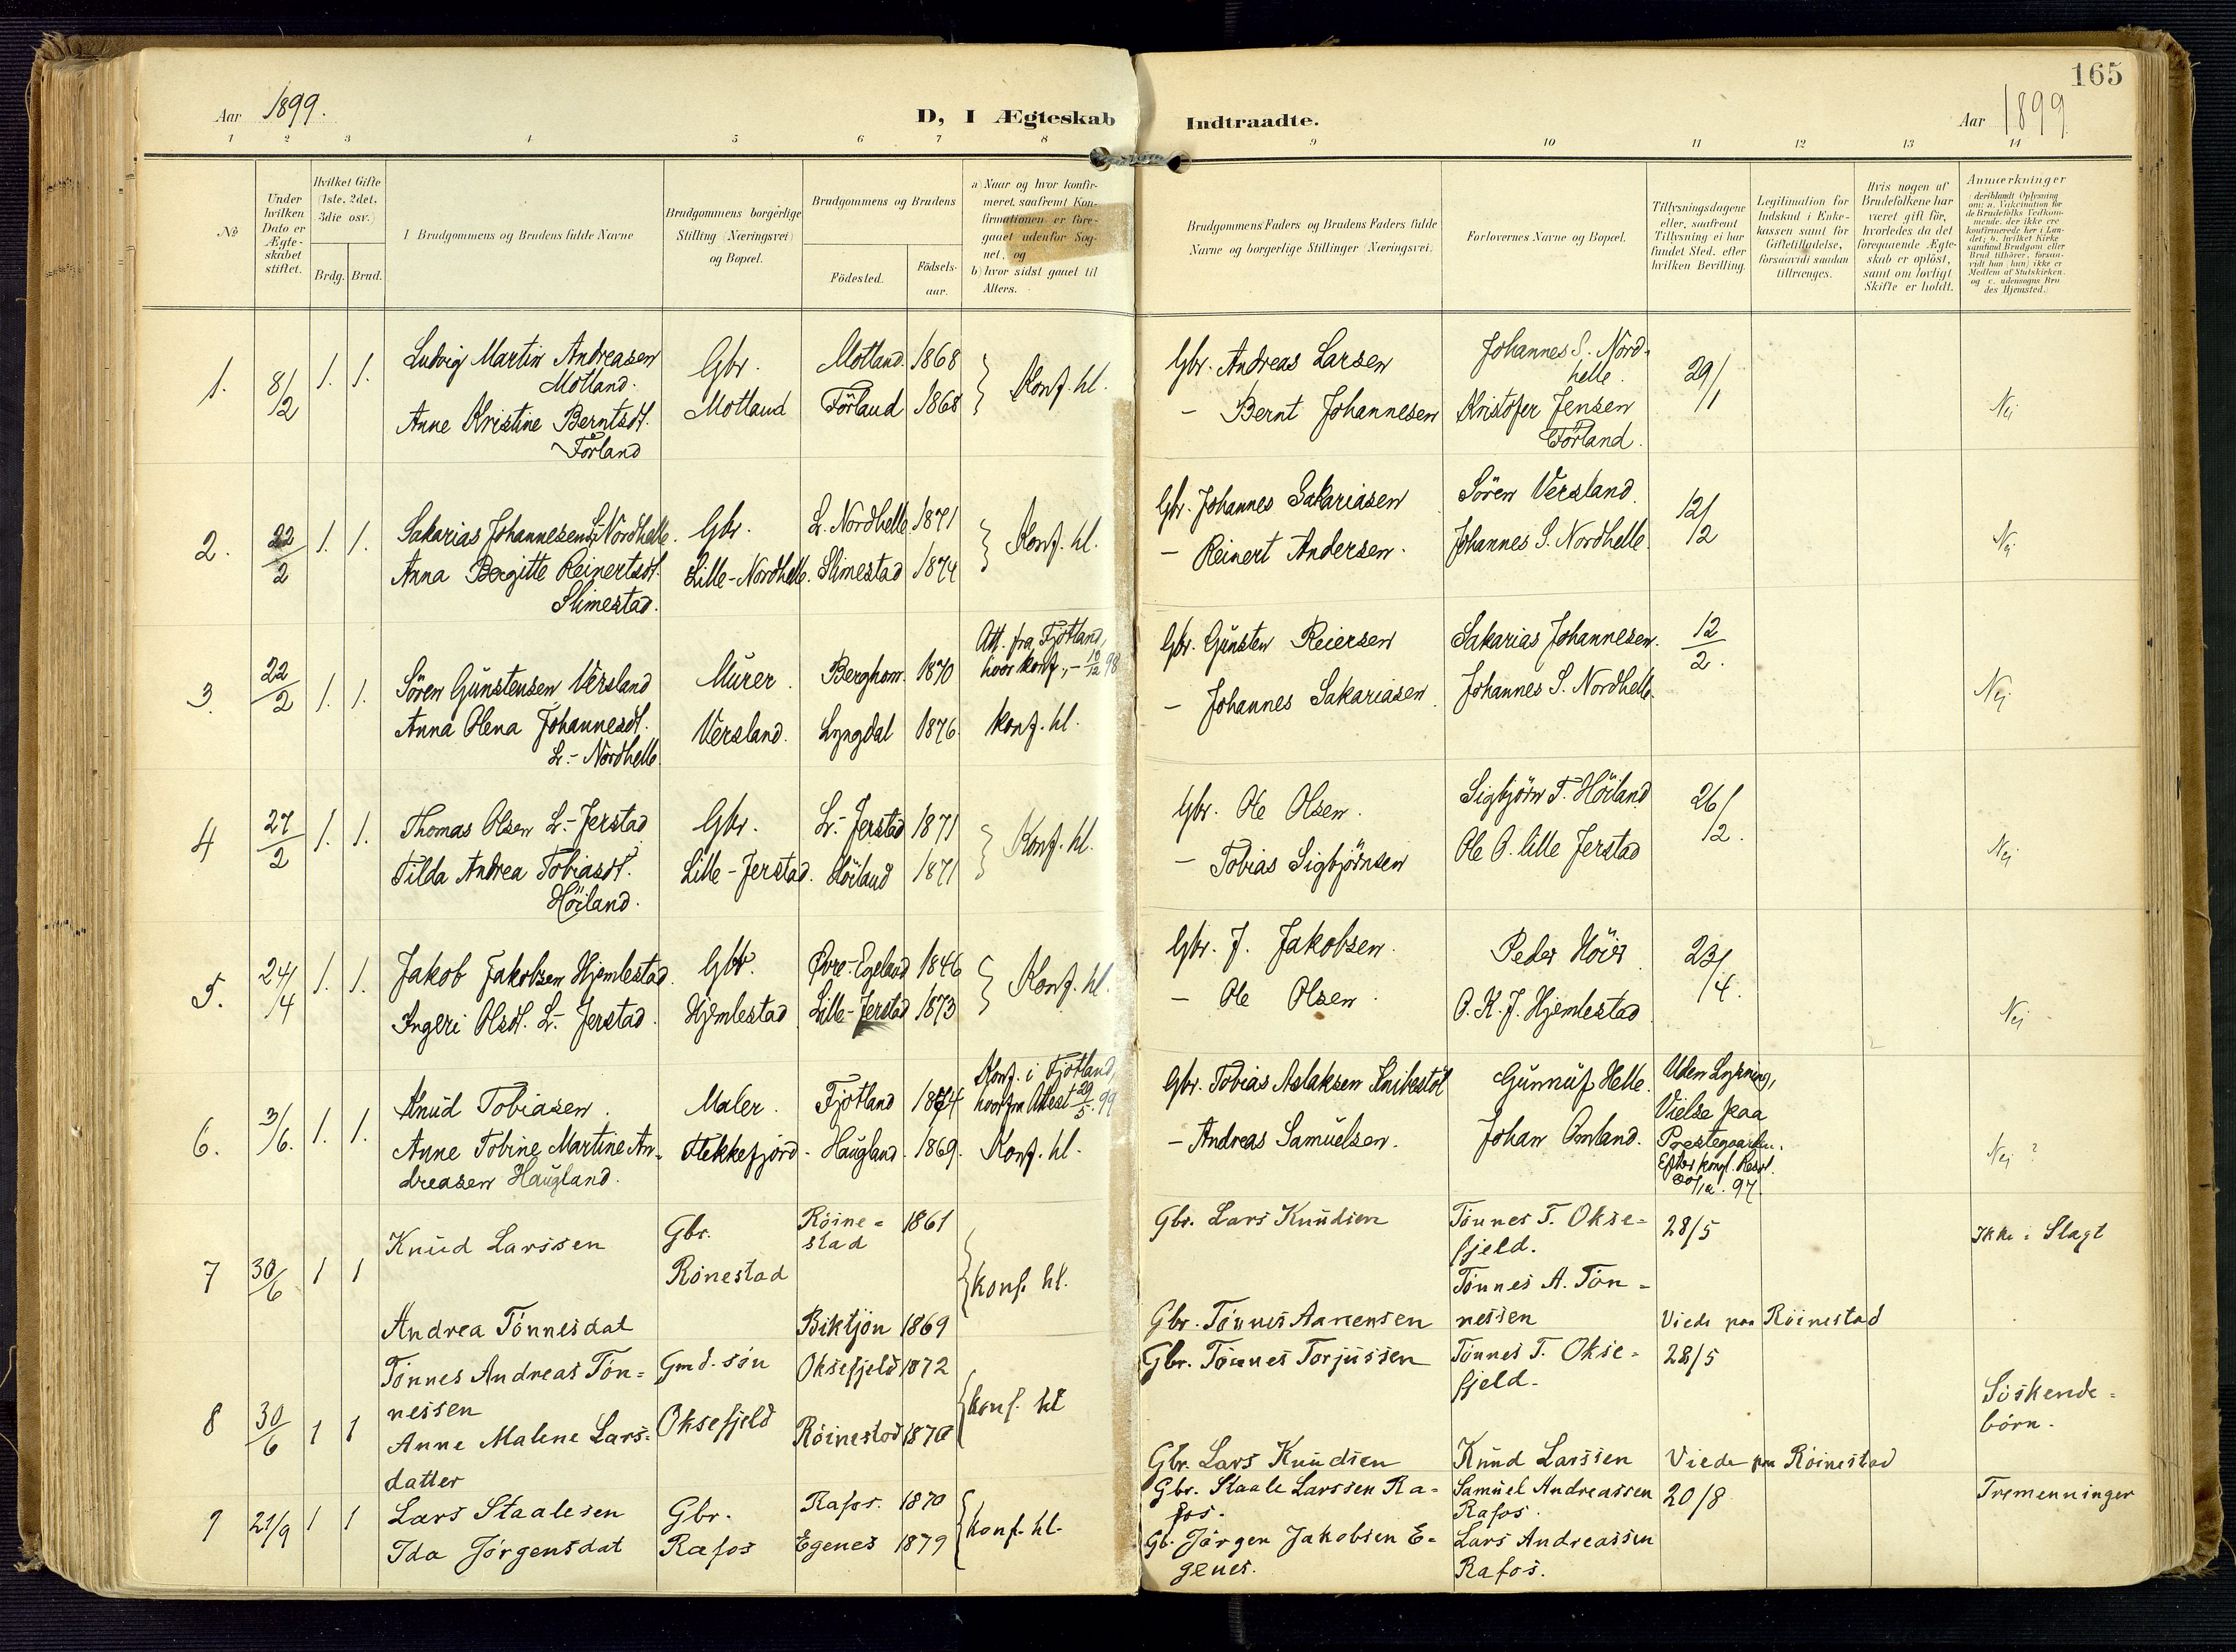 165
Aar 1899.
D, I Ægteskab Indtraadte.
Aar 1899
1 2 3 4 5 6 7 8 9 10 11 12 13 14
No
Under hvilken Dato er Ægteskabet stiftet.
Hvilket Gifte (1ste, 2det, 3die osv.)
Brdg. Brud.
Brudgommens og Brudens fulde Navne
Brudgommens borgerlige Stilling (Næringsvei) og Bopæl.
Brudgommens og Brudens
Fødested.
Fødselsaar.
a) Naar og hvor konfirmeret, saafremt Konfirmationen er foregaaet udenfor Sognet, og
b) hvor sidst gaaet til Alters.
Brudgommens Faders og Brudens Faders fulde Navne og borgerlige Stillinger (Næringsvei)
Forlovernes Navne og Bopæl.
Tillysningsdagene eller, saafremt Tillysning ei har fundet Sted, efter hvilken Bevilling.
Legitimation for Indskud i Enkekassen samt for Giftetilladelse, forsaavidt saadan tiltrænges.
Hvis nogen af Brudefolkene har været gift før, hvorledes da det foregaaende Ægteskab er opløst, samt om lovligt Skifte er holdt.
Anmærkninger
(deriblandt Oplysning om: a. Vakcination for de Brudefolks Vedkommende, der ikke ere konfirmerede her i Landet; b. hvilket Kirkesamfund Brudgom eller Brud tilhører, forsaavidt han (hun) ikke er Medlem af Statskirken, og c. udensogns Brudes Hjemsted.)
1. 8/2 1. 1. Ludvig Martin Andreasen Motland. Gbr. Motland. 1868 Konf. hl. Gbr. Andreas Larsen Johannes S. Nordhelle. 29/1
Anne Kristine Berntsdt. Förland Motland Förland 1868 - Bernt Johannesen Kristofer Jensen Förland. Nei
2. 22/2 1. 1. Sakarias Johannesen L. Nordhelle. Gbr. L. Nordhelle. 1871 Konf. hl. Gbr. Johannes Sakariasen Sören Versland. 12/12
Anna Bergitte Reinertsdt. Slimestad. Lille-Nordhelle. Slimestad 1874 - Reinert Andersen. Johannes S. Nordhelle. Nei
3. 22/2 1. 1. Sören Gunstensen Versland Murer. Berghom. 1870 Att. fra Fjotland, hvor konf., - 10/12 98 Gbr. Gunsten Reiersen Sakarias Johannesen. 12/2.
Anna Olena Johannesdt. L.- Nordhelle. Versland. Lyngdal 1876 konf. hl. - Johannes Sakariasen. Johannes S. Nordhelle. Nei
4 27/2 1. 1. Thomas Olsen L.- Jerstad Gbr. L.- Jerstad 1871 Konf. hl. Gbr. Ole Olsen. Sigbjörn T. Höiland 26/12.
Tilda Andrea Tobiasdt. Höiland. Lille-Jerstad. Höiland 1871 - Tobias Sigbjörnsen Ole O. lille Jerstad Nei
5. 24/4 1. 1. Jakob Jakobsen Hjemlestad. Gbr. Øvre-Egeland 1846 Konf. hl. Gbr. J. Jakobsen. Peder Höier 23/4.
Ingeri Olsdt. L.- Jerstad. Hjemlestad Lille-Jerstad 1873 - Ole Olsen. O. K. J. Hjemlestad. Nei
6. 3/6. 1. 1. Knud Tobiasen. Maler. Fjotland 1874 Konf. i Fjotland, hvorfra Attest 29/5. 99 Gbr. Tobias Aslaksen Knibestöl Gunnuf Helle. Uden Lysning, Vielse paa Prestegaarden. Efter kongl. Resol. 97
Anne Tobine Martine Andreasen Haugland. Flekkefjord. Haugland. 1869. Konf. hl. - Andreas Samuelsen. Johan Omland. Nei ?
7 30/6 1 1 Knud Larssen Gbr. Rönestad Röinestad 1861 konf. hl. Gbr. Lars Knudsen Tönnes T. Oksefjeld. 28/5 Ikke i Slagt
Andrea Tönnesdat Biktjön 1869 Gbr. Tönnes Aanensen Tönnes A. Tönnessen Viede paa Röinestad
8 30/6 1 1 Tönnes Andreas Tönnessen Gmd. sön Oksefjeld Oksefjeld 1872 konf. hl Gbr. Tönnes Torjussen Tönnes T. Oksefjeld. 28/5 Söskendebörn.
Anne Malene Larsdatter Röinestad 1870 Gbr. Lars Knudsen Knud Larssen Viede paa Röinestad
9 21/9 1 1 Lars Staalesen Gbr. Rafos. 1870 konf. hl. Gbr. Staale Larssen Rafos. Samuel Andreassen Rafos. 20/8 Tremenninger
Ida Jörgensdat Rafos Egenes 1879 Gb. Jörgen Jakobsen Egenes. Lars Andreassen Rafos.